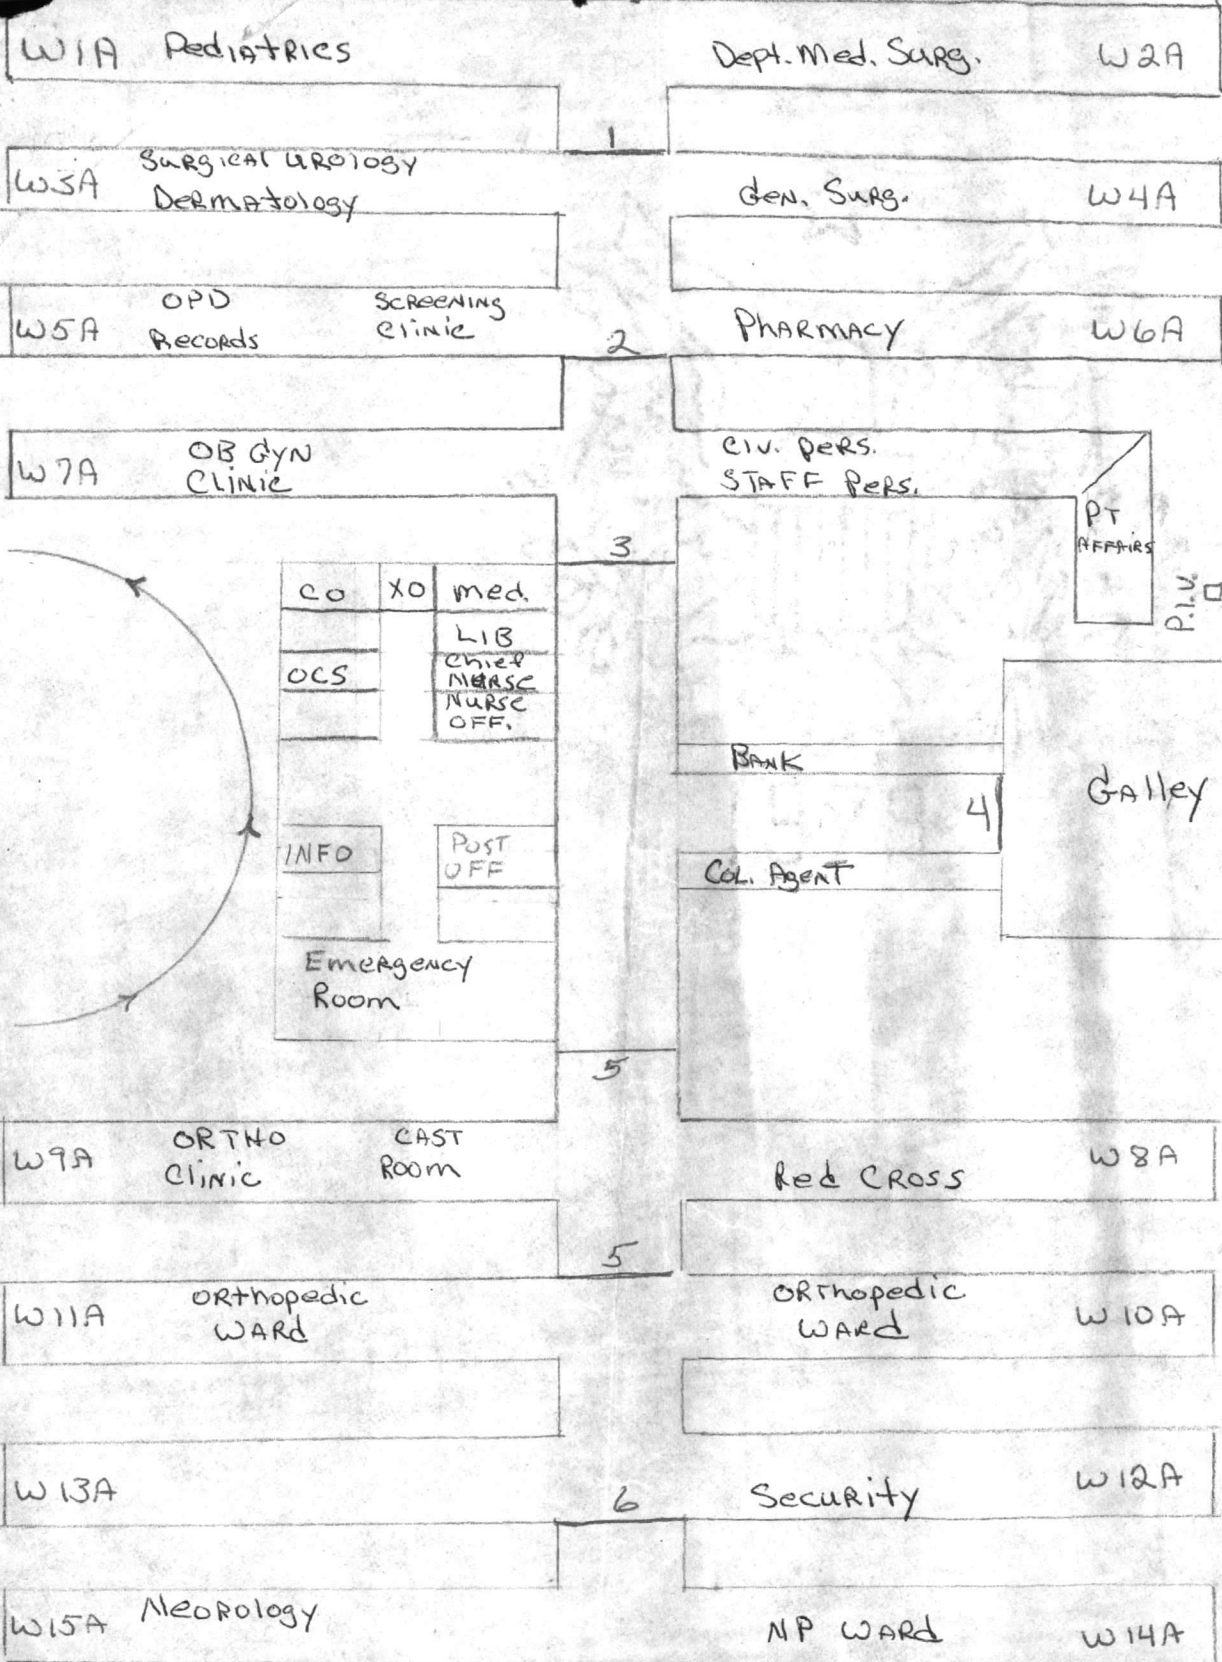 W1A Pediatrics
Dept. Med. Surg. W2A
1
W3A Surgical Urology
Dermatology
Gen. Surg. W4A
W5A OPD Records
Screening Clinic
2
Pharmacy W6A
W7A OB GYN
Clinic
Civ. Pers.
Staff Pers.
PT
Affairs
P.I.V.
3
CO XO Med.
LIB
OCS
Chief
Nurse
Nurse
Off.
Bank
4
Galley
INFO
Post
Off
Col. Agent
Emergency
Room
5
W9A Ortho
Clinic
Cast
Room
Red Cross W8A
5
W11A Orthopedic
Ward
Orthopedic
Ward W10A
W13A
6
Security W12A
W15A Neorology
NP Ward W14A